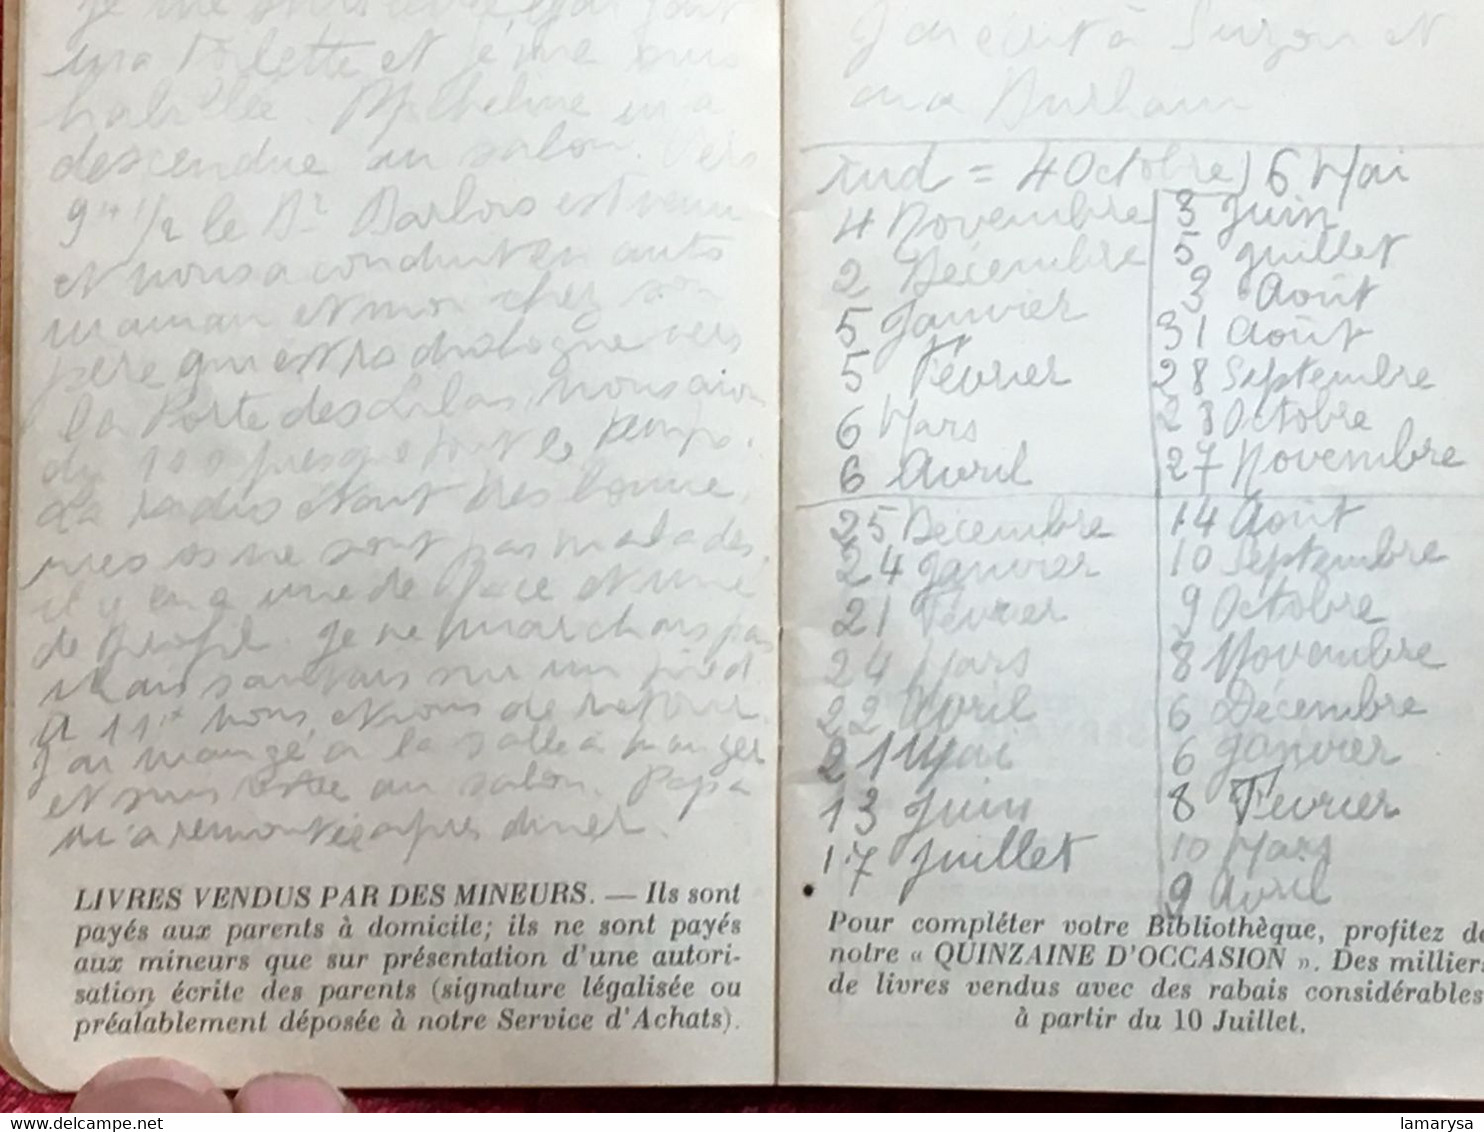 ma toilette et je me suis
habillée. Micheline m'a
descendue au salon. Vers
9h 1/2 le Dr Barlois est venu
et nous a conduit en auto
maman et moi chez son
père qui est radiologue vers
la Porte des Lilas, nous avions
du presque tout le temps.
La radio étant très bonne,
mes os ne sont pas malades.
il y en a une de face et une
de profil. Je ne marchais pas
mais sautais sur un pied.
A 11h nous étions de retour.
J'ai mangé à la salle à manger
et suis restée au salon. Papa
m'a remontée après diner.
LIVRES VENDUS PAR DES MINEURS. — Ils sont
payés aux parents à domicile; ils ne sont payés
aux mineurs que sur présentation d'une autori-
sation écrite des parents (signature légalisée ou
préalablement déposée à notre Service d'Achats).
J'ai écrit à Suzon et
= 4 Octobre) 6 Mai
4 Novembre 3 Juin
2 Décembre 5 Juillet
5 Janvier 3 Août
5 Février 31 Août
6 Mars 28 Septembre
6 Avril 28 Octobre
27 Novembre
25 Décembre 14 Août
24 Janvier 10 Septembre
21 Février 9 Octobre
24 Mars 8 Novembre
22 Avril 6 Décembre
21 Mai 6 Janvier
13 Juin 8 Février
17 Juillet 10 Mars
9 Avril
Pour compléter votre Bibliothèque, profitez de
notre « QUINZAINE D'OCCASION ». Des milliers
de livres vendus avec des rabais considérables
à partir du 10 Juillet.
www.delcampe.net
lamarysa